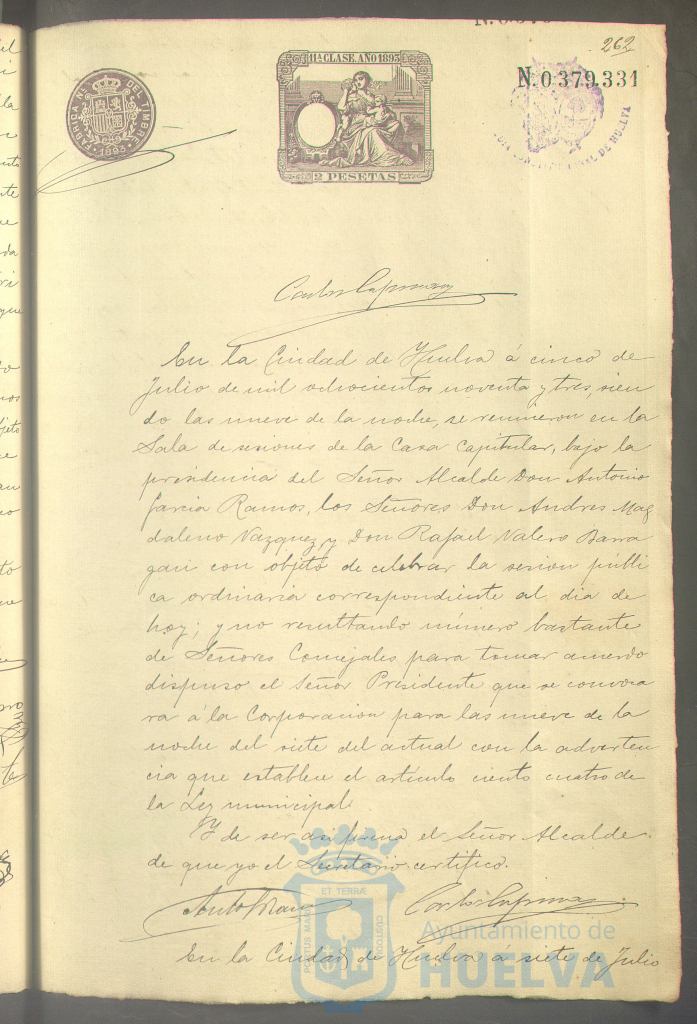 262
11ª CLASE. AÑO 1893
N. 0.379.331
FABRICA NAL DEL TIMBRE
1893
2 PESETAS
DE HUELVA
En la Ciudad de Huelva á cinco de
Julio de mil ochocientos noventa y tres, sien
do las nueve de la noche, se reunieron en la
Sala de sesiones de la Casa Capitular, bajo la
presidencia del Señor Alcalde Don Antonio
Garcia Ramos, los Señores Don Andres Mag
daleno Vazquez, y Don Rafael Valero Barra
gan con objeto de celebrar la sesion públi
ca ordinaria correspondiente al dia de
hoy; y no resultando número bastante
de Señores Concejales para tomar acuerdo
dispuso el Señor Presidente que se convoca
ra á la Corporacion para las nueve de la
noche del siete del actual con la adverten
cia que establece el artículo ciento cuatro de
la Ley municipal.
Y de ser asi firma el Señor Alcalde
de que yo el Secretario certifico.
PORTUS MARIS ET TERRÆ CUSTODIA
Ayuntamiento de
HUELVA
En la Ciudad de Huelva á siete de Julio